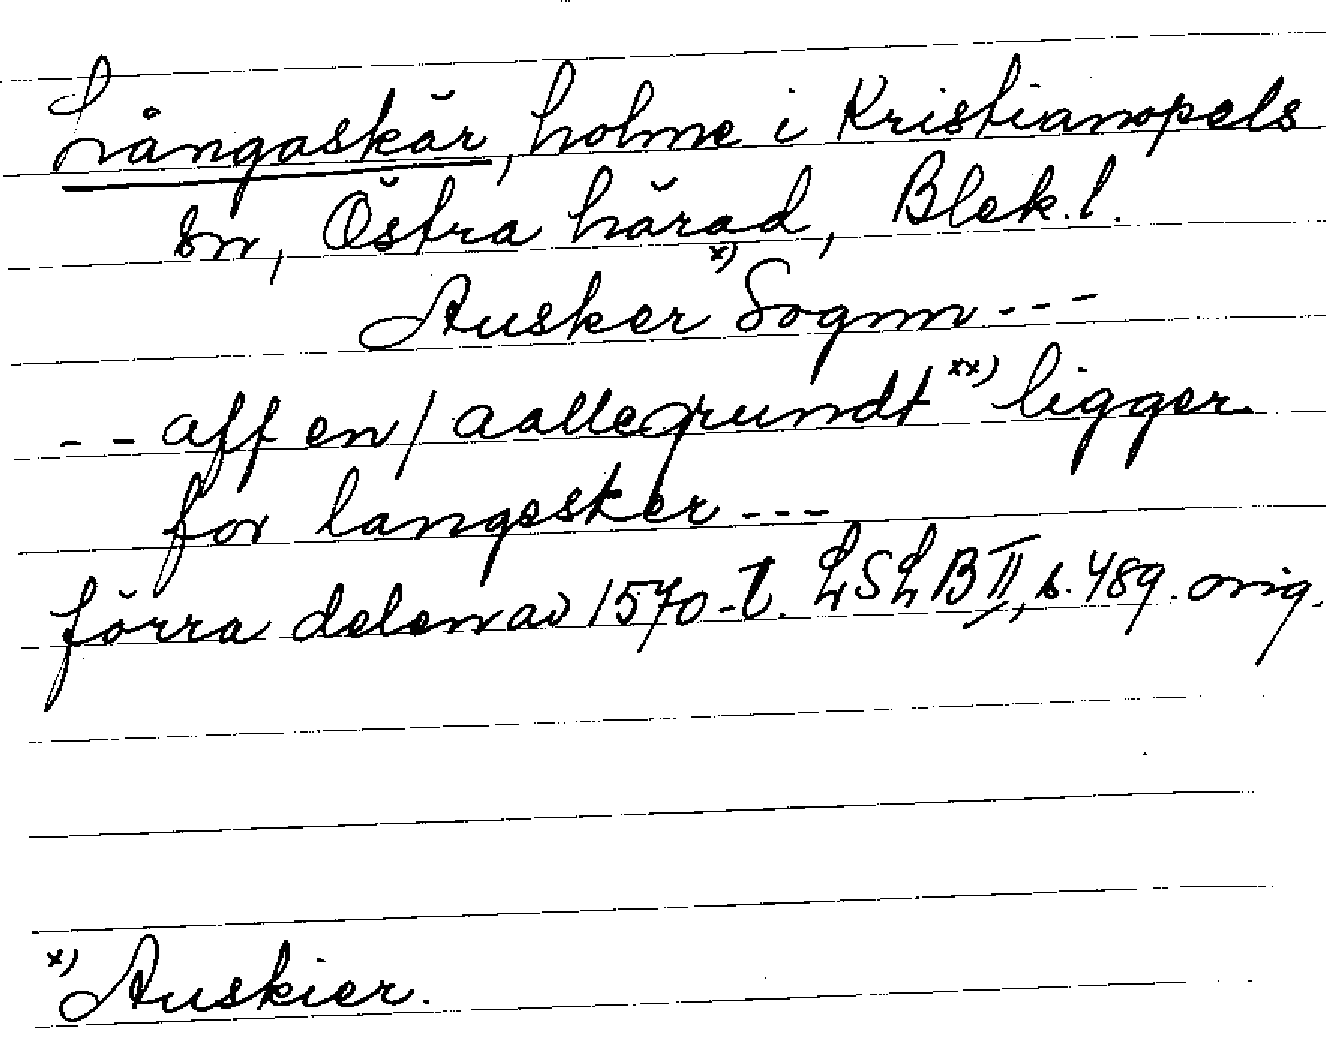 Långaskär, holme i Kristianopels
sn, Östra härad, Blek. l.
Ausker x) Sognn - - -
- - aff en / aallegrundt xx) ligger
for langesker - - -
förra delen av 1570-t. LSLB II, s. 489. orig.
x) Auskier.